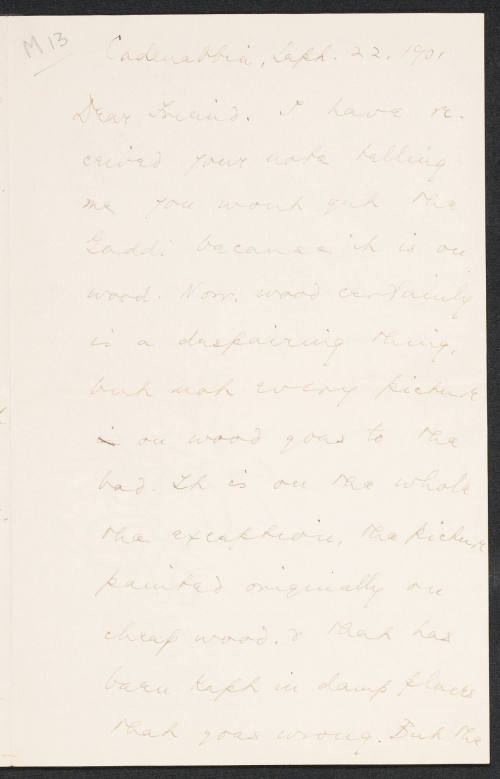 M 13
Cadenabbia, Sept. 22. 1901
Dear Friend. I have re-
ceived your note telling
me you won't get the
Gaddi because it is on
wood. Now, wood certainly
is a despairing thing,
but not every picture
on wood goes to the
bad. It is on the whole
the exception, the picture
painted originally on
cheap wood, & that has
been kept in damp places
that goes wrong. But the